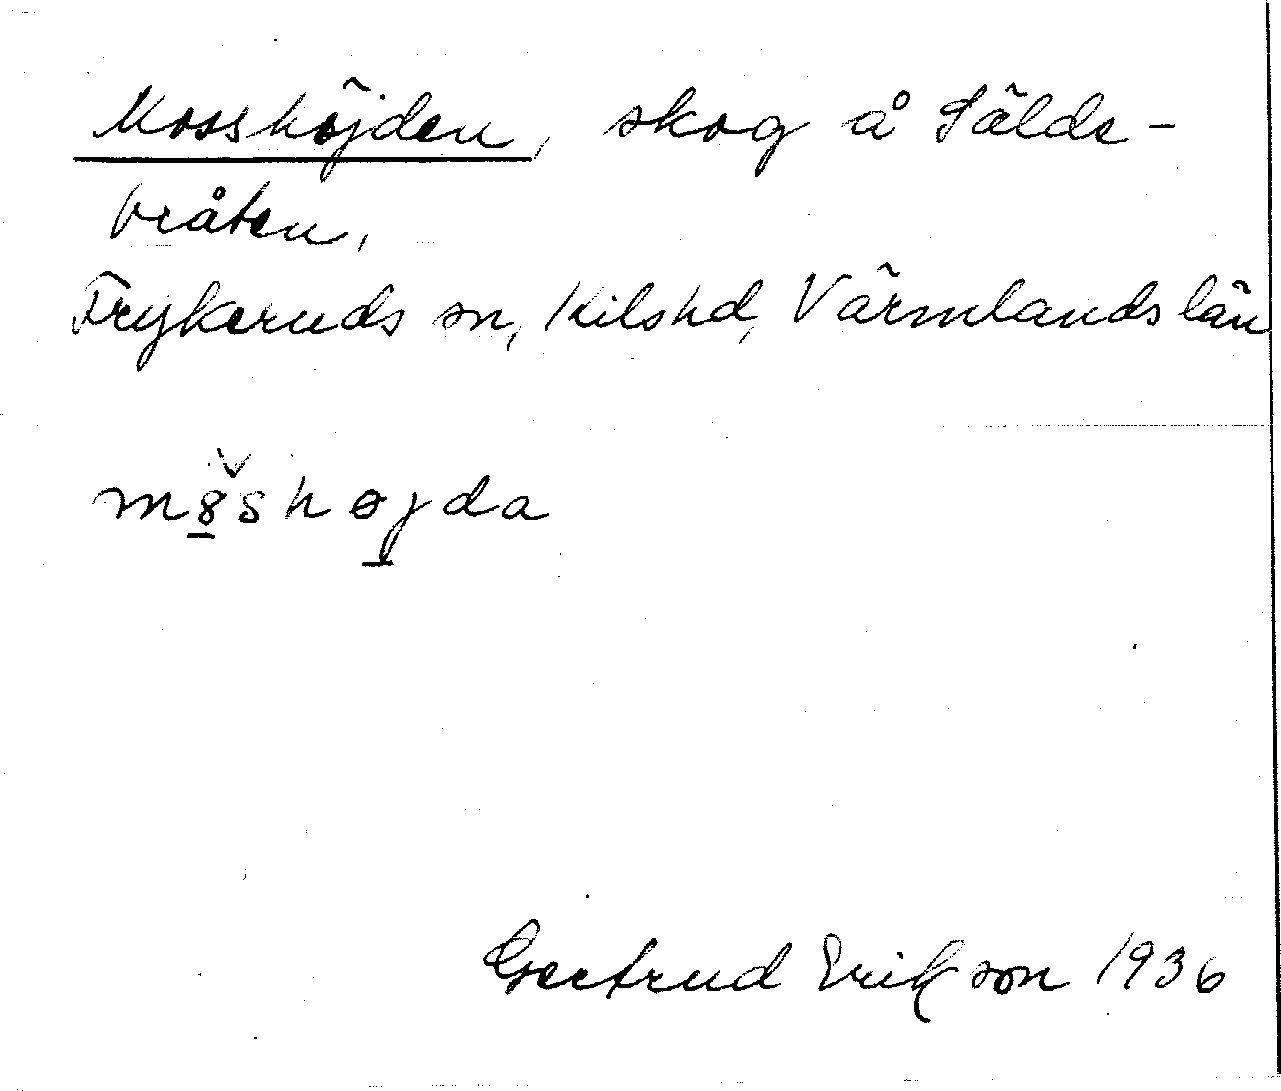 Mosshöjden, skog å Sälds-
bråten,
Frykeruds sn, Kils hd, Värmlands län
m8̌shøjda
Gertrud Erikson 1936